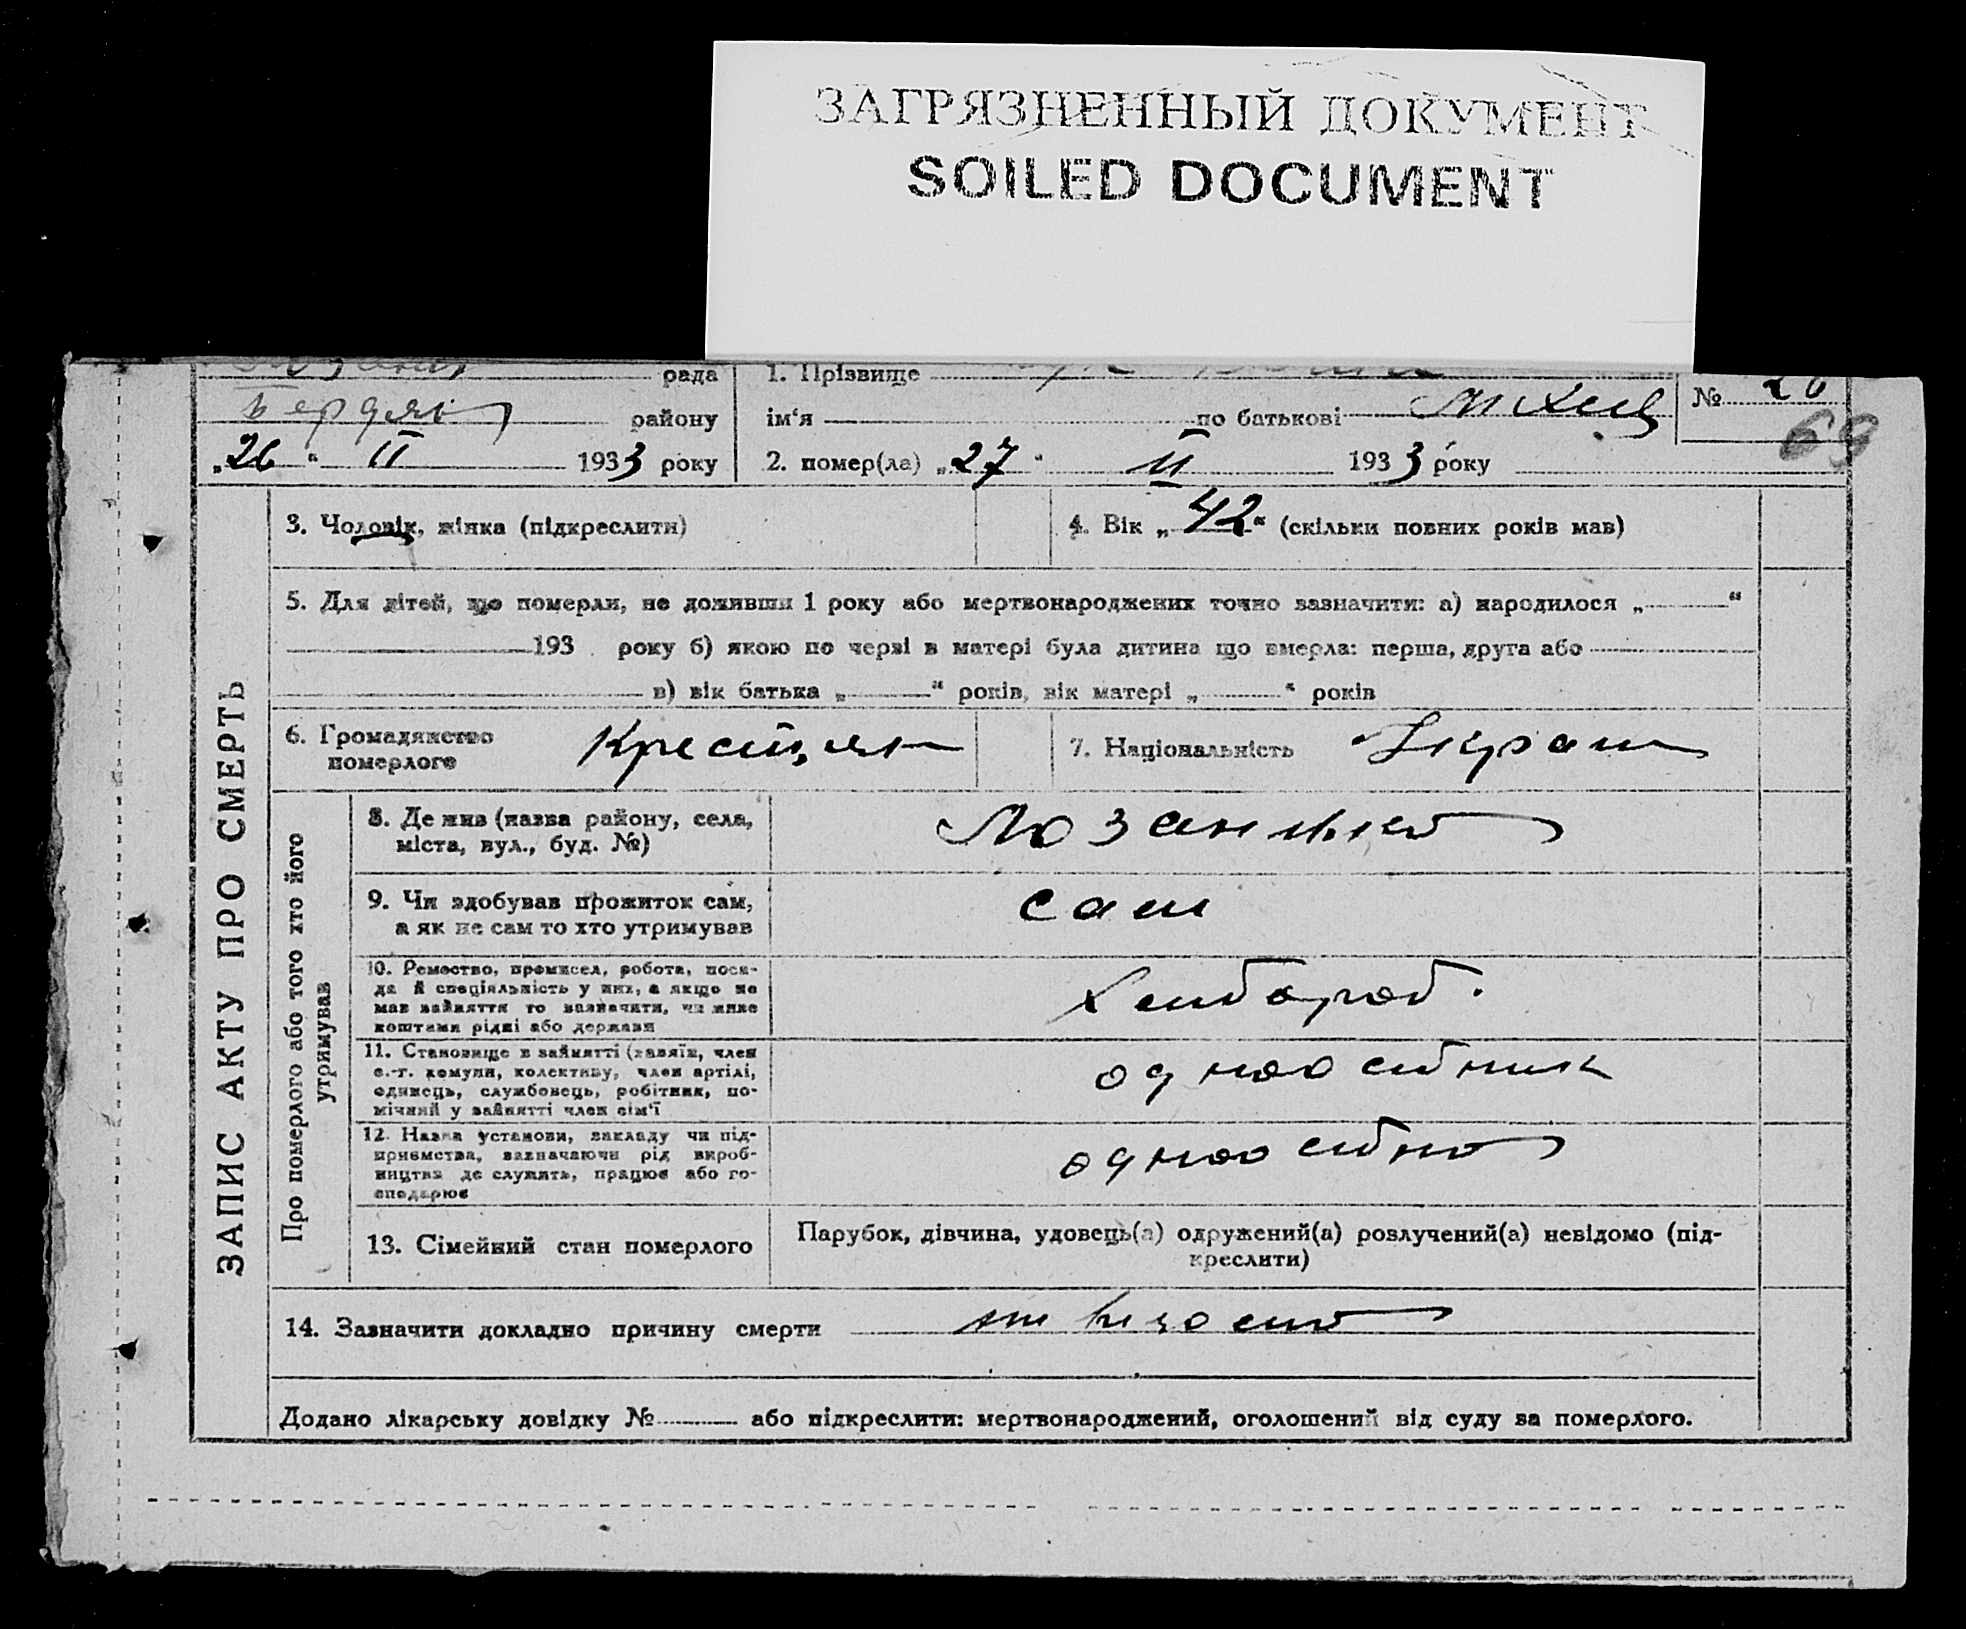 ЗАГРЯЗНЕННЫЙ ДОКУМЕНТ
SOILED DOCUMENT
рада
1. Прізвище
№ 26
района
ім'я по батькові
69
„26“ II 1933 року
2. помер(ла) „27“ II 1933 року
ЗАПИС АКТУ ПРО СМЕРТЬ
3. Чоловік, жінка (підкреслити)
4. Вік „42“ (скільки повних років мав)
5. Для дітей, що померли, не доживши 1 року або мертвонароджених точно зазначити: а) народилося „ “
193 року б) якою по черзі в матері була дитина що вмерла: перша, друга або
в) вік батька „ “ років, вік матері „ “ років
6. Громадянство
померлого
Крестян
7. Національність
Украин
Про померлого або того хто його
утримував
8. Де жив (назва району, села,
міста, вул., буд. №)
9. Чи здобував прожиток сам,
а як не сам то хто утримував
сам
10. Ремество, промисел, робота, поса-
да й спеціяльність у них, а якщо не
мав зайняття то зазначити, чи живе
коштами рідні або держави
Хлибороб.
11. Становище в зайнятті (хазяїн, член
с.-г. комуни, колективу, член артілі,
одинець, службовець, робітник, по-
мічний у зайнятті член сім'ї
одноосибник
12. Назва установи, закладу чи під-
приємства, зазначаючи рід вироб-
ництва де служить, працює або го-
сподарює
13. Сімейний стан померлого
Парубок, дівчина, удовець(а) одружений(а) розлучений(а) невідомо (під-
креслити)
14. Зазначити докладно причину смерти
Додано лікарську довідку № або підкреслити: мертвонароджений, оголошений від суду за померлого.